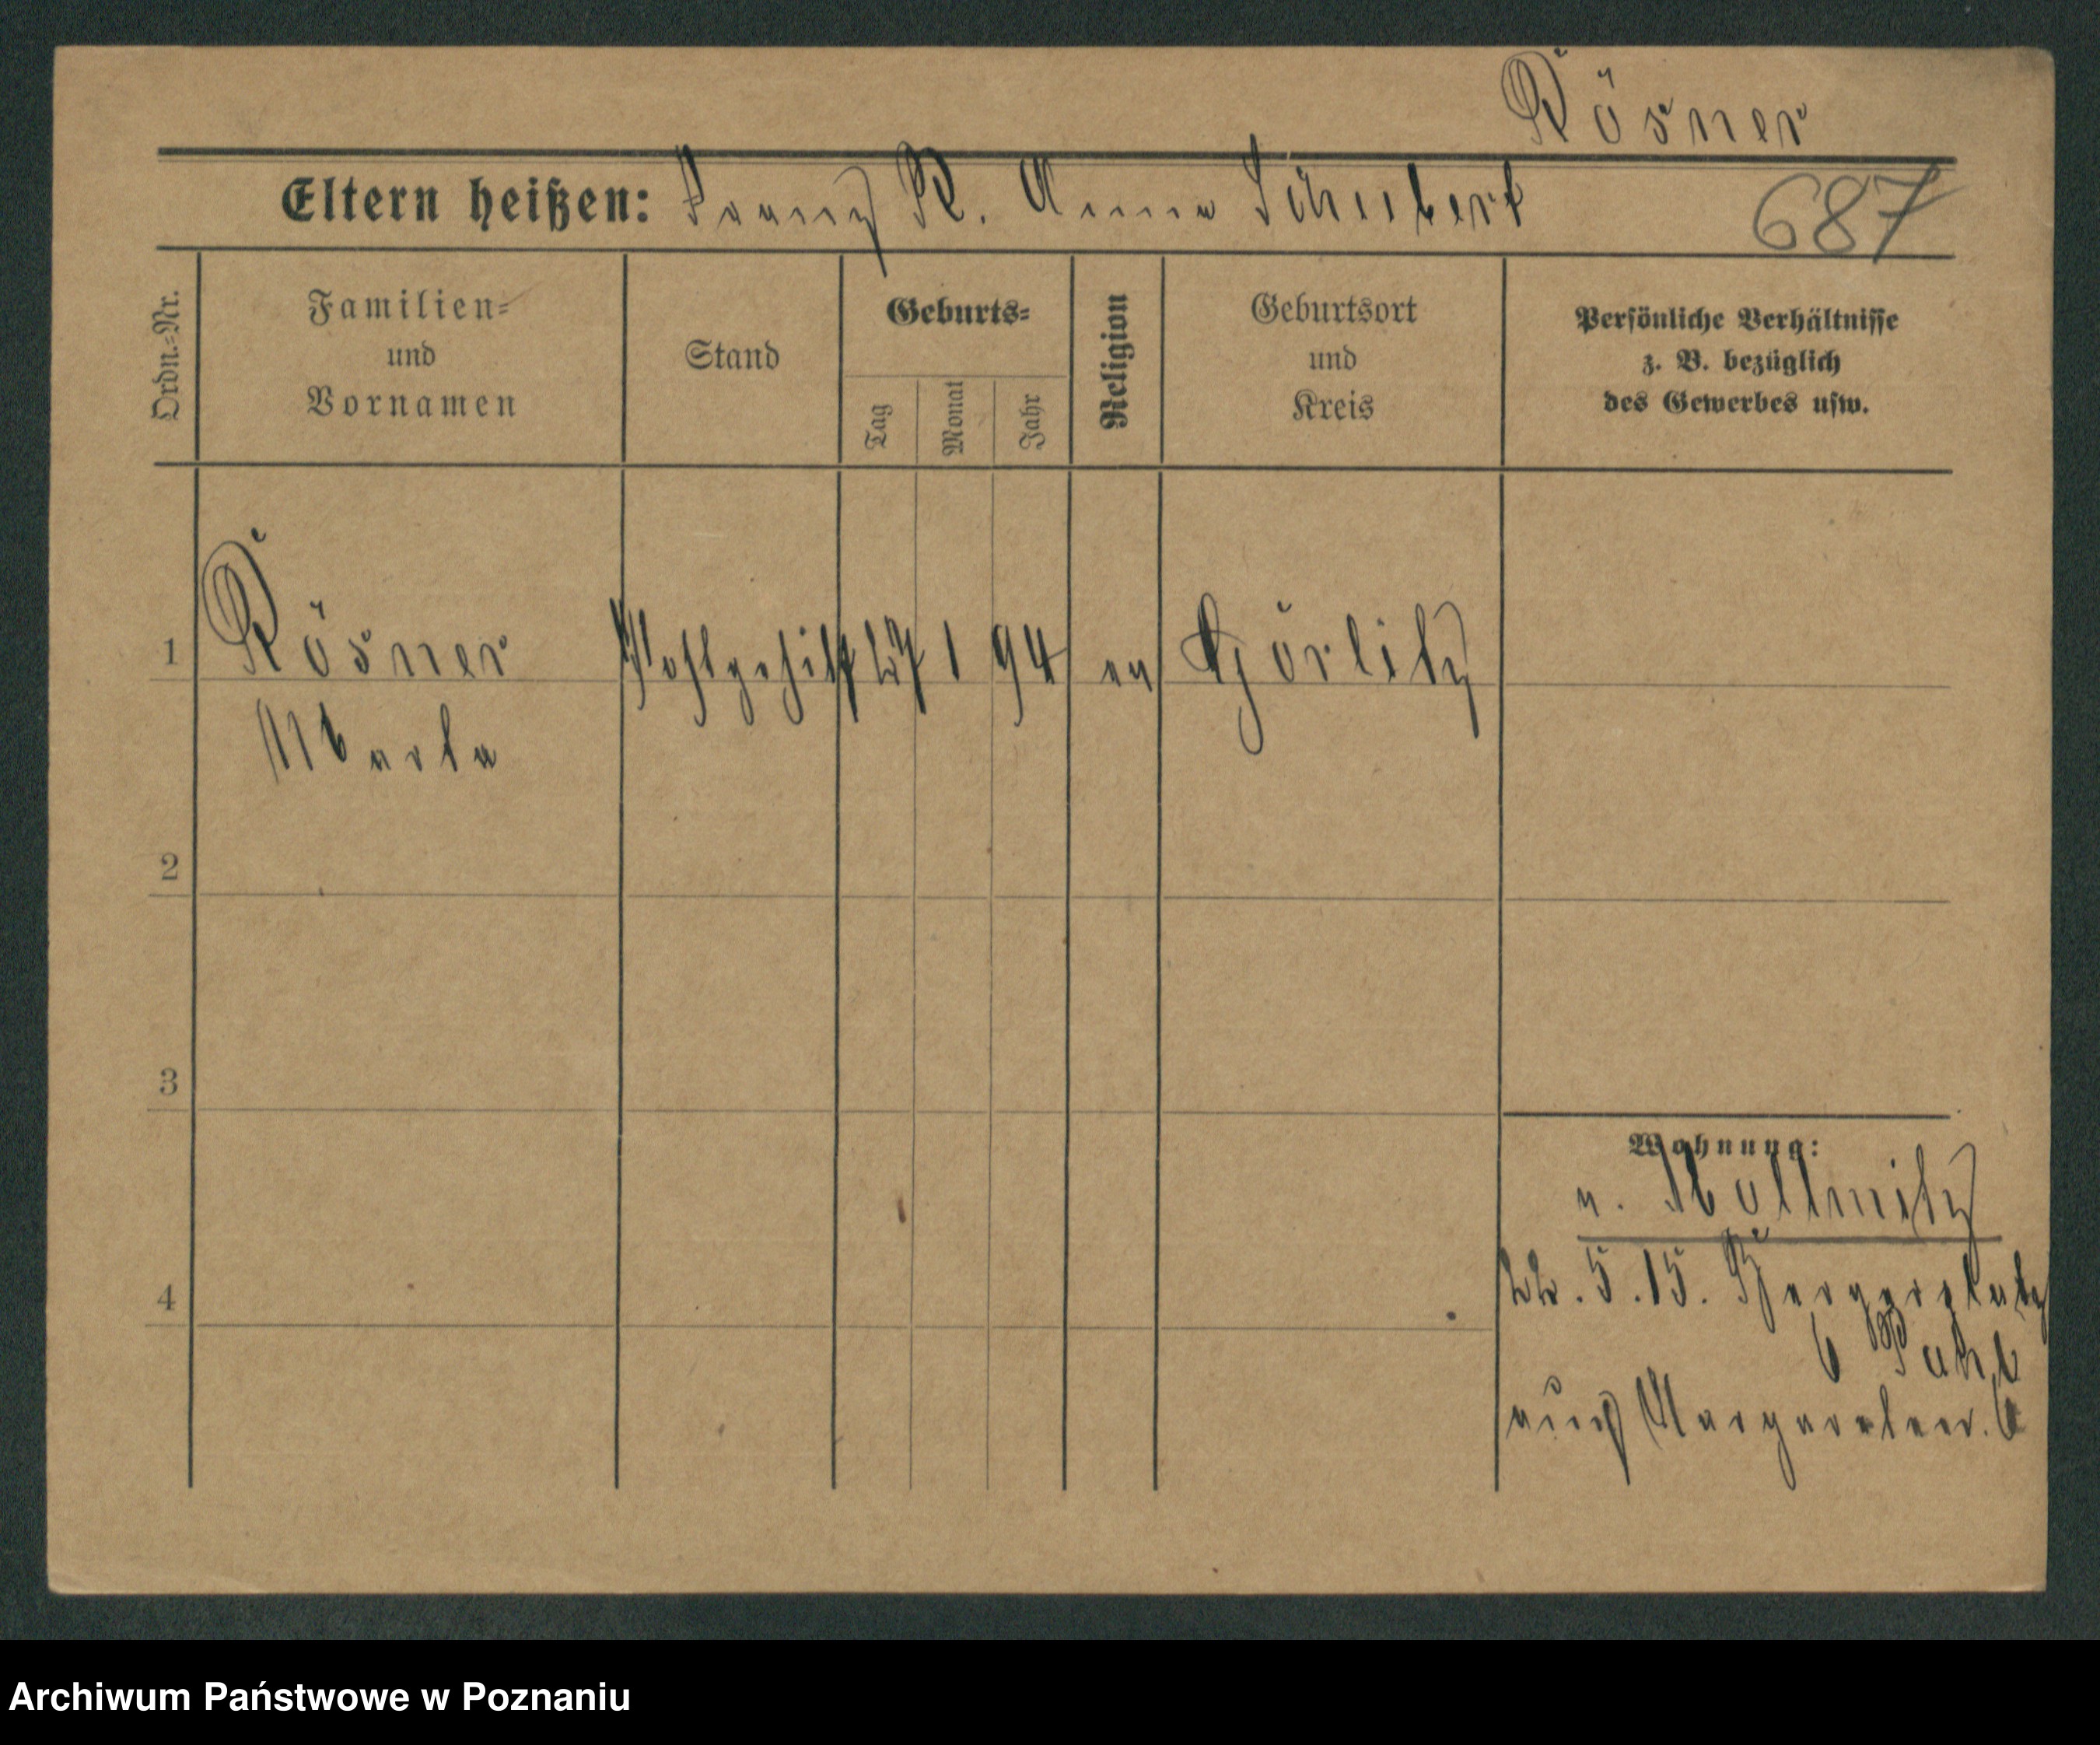 Rösner
Eltern heißen: Franz R. Anna Schubert
687
Ordn.-Nr.
Familien-
und
Vornamen
Stand
Geburts-
Tag
Monat
Jahr
Religion
Geburtsort
und
Kreis
Persönliche Verhältnisse
z. B. bezüglich
des Gewerbes usw.
1 Rösner 27 1 94 ev Görlitz
2
3
4
Wohnung:
v. Kollmitz
22. 5. 15. Bergerplatz
6
Margareten. 6
Archiwum Państwowe w Poznaniu